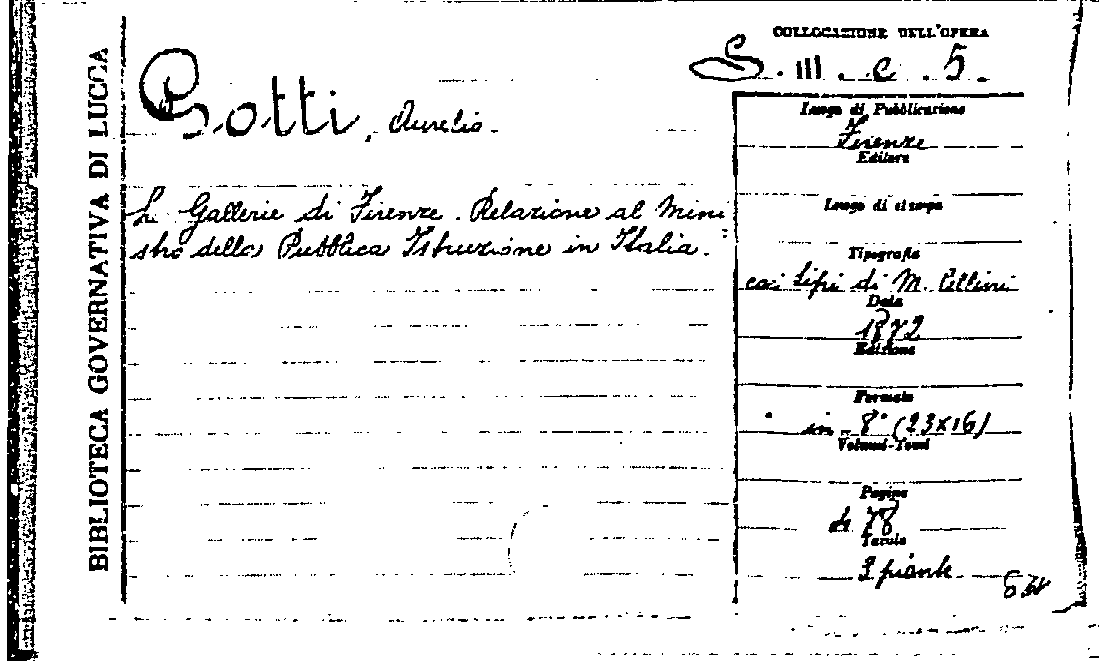 BIBLIOTECA GOVERNATIVA DI LUCCA
Gotti, Aurelio.
Le Gallerie di Firenze. Relazione al Mini
stro della Pubblica Istruzione in Italia.
COLLOCAZIONE DELL'OPERA
S. III. c. 5.
Luogo di Pubblicazione
Firenze
Editore
Luogo di stampa
Tipografia
coi tipi di M. Cellini
Data
1872
Edizione
Formato
in-8° (23x16)
Volumi-Tomi
Pagine
di 78
Tavole
3 piante